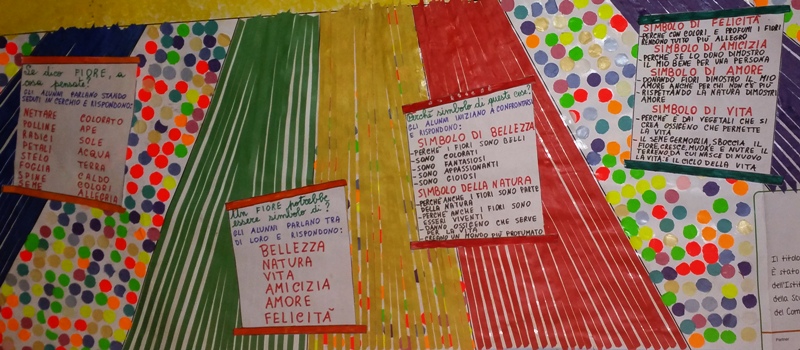 Se dico FIORE, a
cosa pensate?
GLI ALUNNI PARLANO STANDO
SEDUTI IN CERCHIO E RISPONDONO:
NETTARE
POLLINE
RADICI
PETALI
STELO
FOGLIA
SPINE
SEME
COLORATO
APE
SOLE
ACQUA
TERRA
CALDO
COLORI
ALLEGRIA
Un FIORE potrebbe
essere simbolo di?
GLI ALUNNI PARLANO TRA
DI LORO E RISPONDONO:
BELLEZZA
NATURA
VITA
AMICIZIA
AMORE
FELICITÀ
Perché simbolo di queste cose?
GLI ALUNNI INIZIANO A CONFRONTARSI
RISPONDONO:
SIMBOLO DI BELLEZZA
- PERCHÈ I FIORI SONO BELLI
- SONO COLORATI
- SONO FANTASIOSI
- SONO APPASSIONANTI
- SONO GIOIOSI
SIMBOLO DELLA NATURA
- PERCHÈ ANCHE I FIORI SONO PARTE
DELLA NATURA
- PERCHÈ ANCHE I FIORI SONO
ESSERI VIVENTI
- DANNO OSSIGENO CHE SERVE
PER LA VITA
- CREANO UN MONDO PIÙ PROFUMATO
SIMBOLO DI FELICITÀ
- PERCHÈ CON COLORI E PROFUMI I FIORI
RENDONO TUTTO PIÙ ALLEGRO
SIMBOLO DI AMICIZIA
- PERCHÈ SE LO DONO DIMOSTRO
IL MIO BENE PER UNA PERSONA
SIMBOLO DI AMORE
- DONANDO FIORI DIMOSTRO IL MIO
AMORE ANCHE PER CHI NON C'È PIÙ
- RISPETTANDO LA NATURA DIMOSTRO
AMORE
SIMBOLO DI VITA
- PERCHÈ È DAI VEGETALI CHE SI
CREA OSSIGENO CHE PERMETTE
LA VITA
- IL SEME GERMOGLIA, SBOCCIA IL
FIORE, CRESCE, MUORE E NUTRE IL
TERRENO DA CUI NASCE DI NUOVO
LA VITA: È IL CICLO DELLA VITA
Il titolo
È stato
dell'Istit
della Sc
del Com
Partner